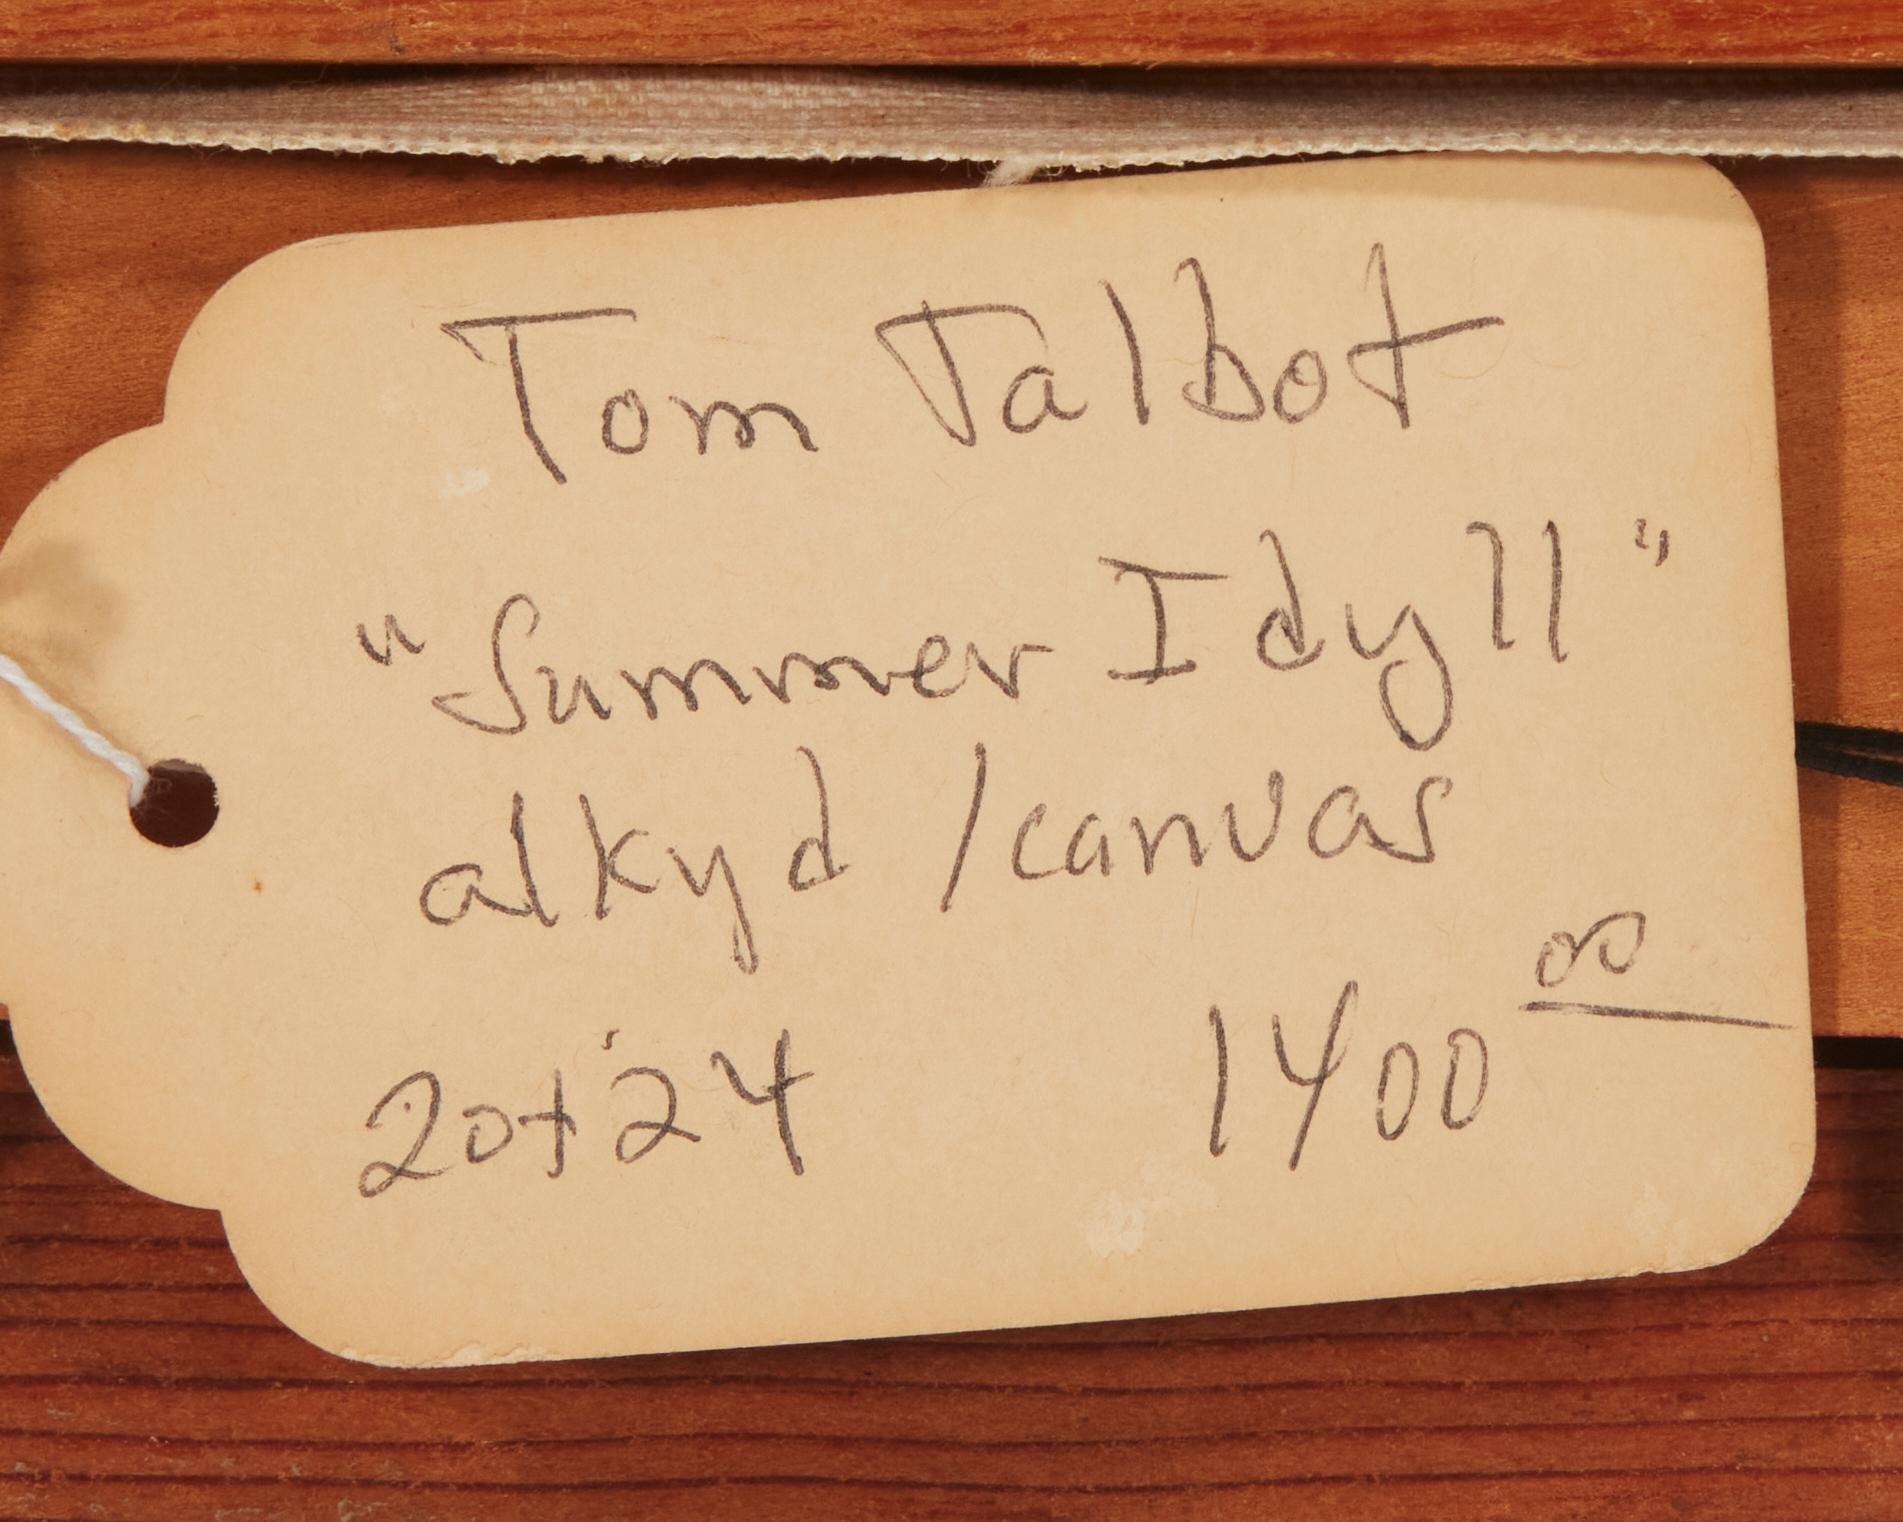 Tom Talbot
"Summer Idyll"
alkyd / canvas
20x24 1400 00